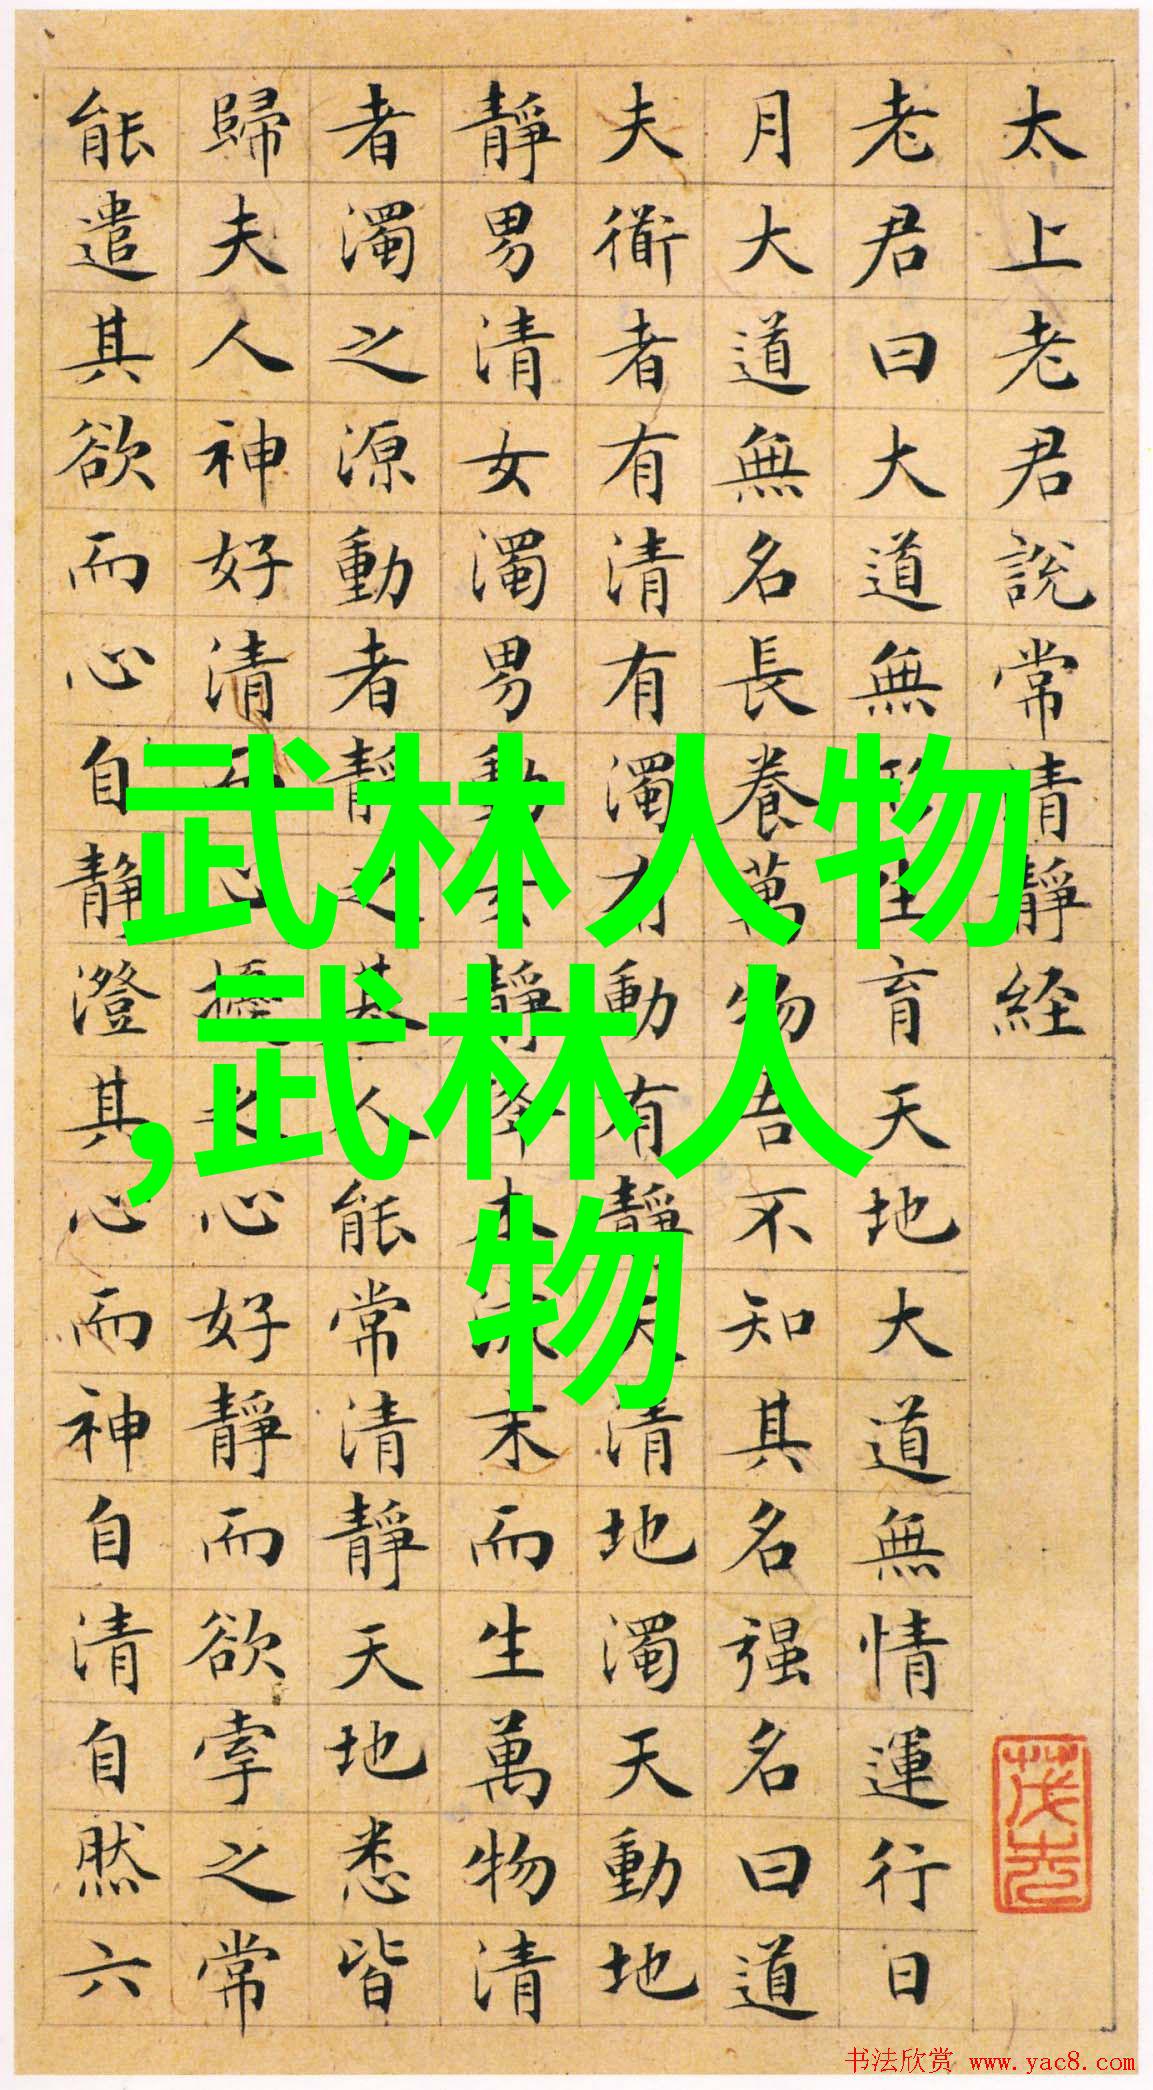 太上老君説常清靜経
老君曰大道無形生育天地大道無情運行日
月大道無名長養萬物吾不知其名强名曰道
夫衟者有清有濁有動有靜天清地濁天動地
靜男清女濁男動女靜降本流末而生萬物清
者濁之源動者靜之基人能常清靜天地悉皆
歸夫人神好清而心擾之心好靜而欲牽之常
能遣其欲而心自靜澄其心而神自清自然六
武林人物
,武林人
物
茂先
书法欣赏 www.yac8.com